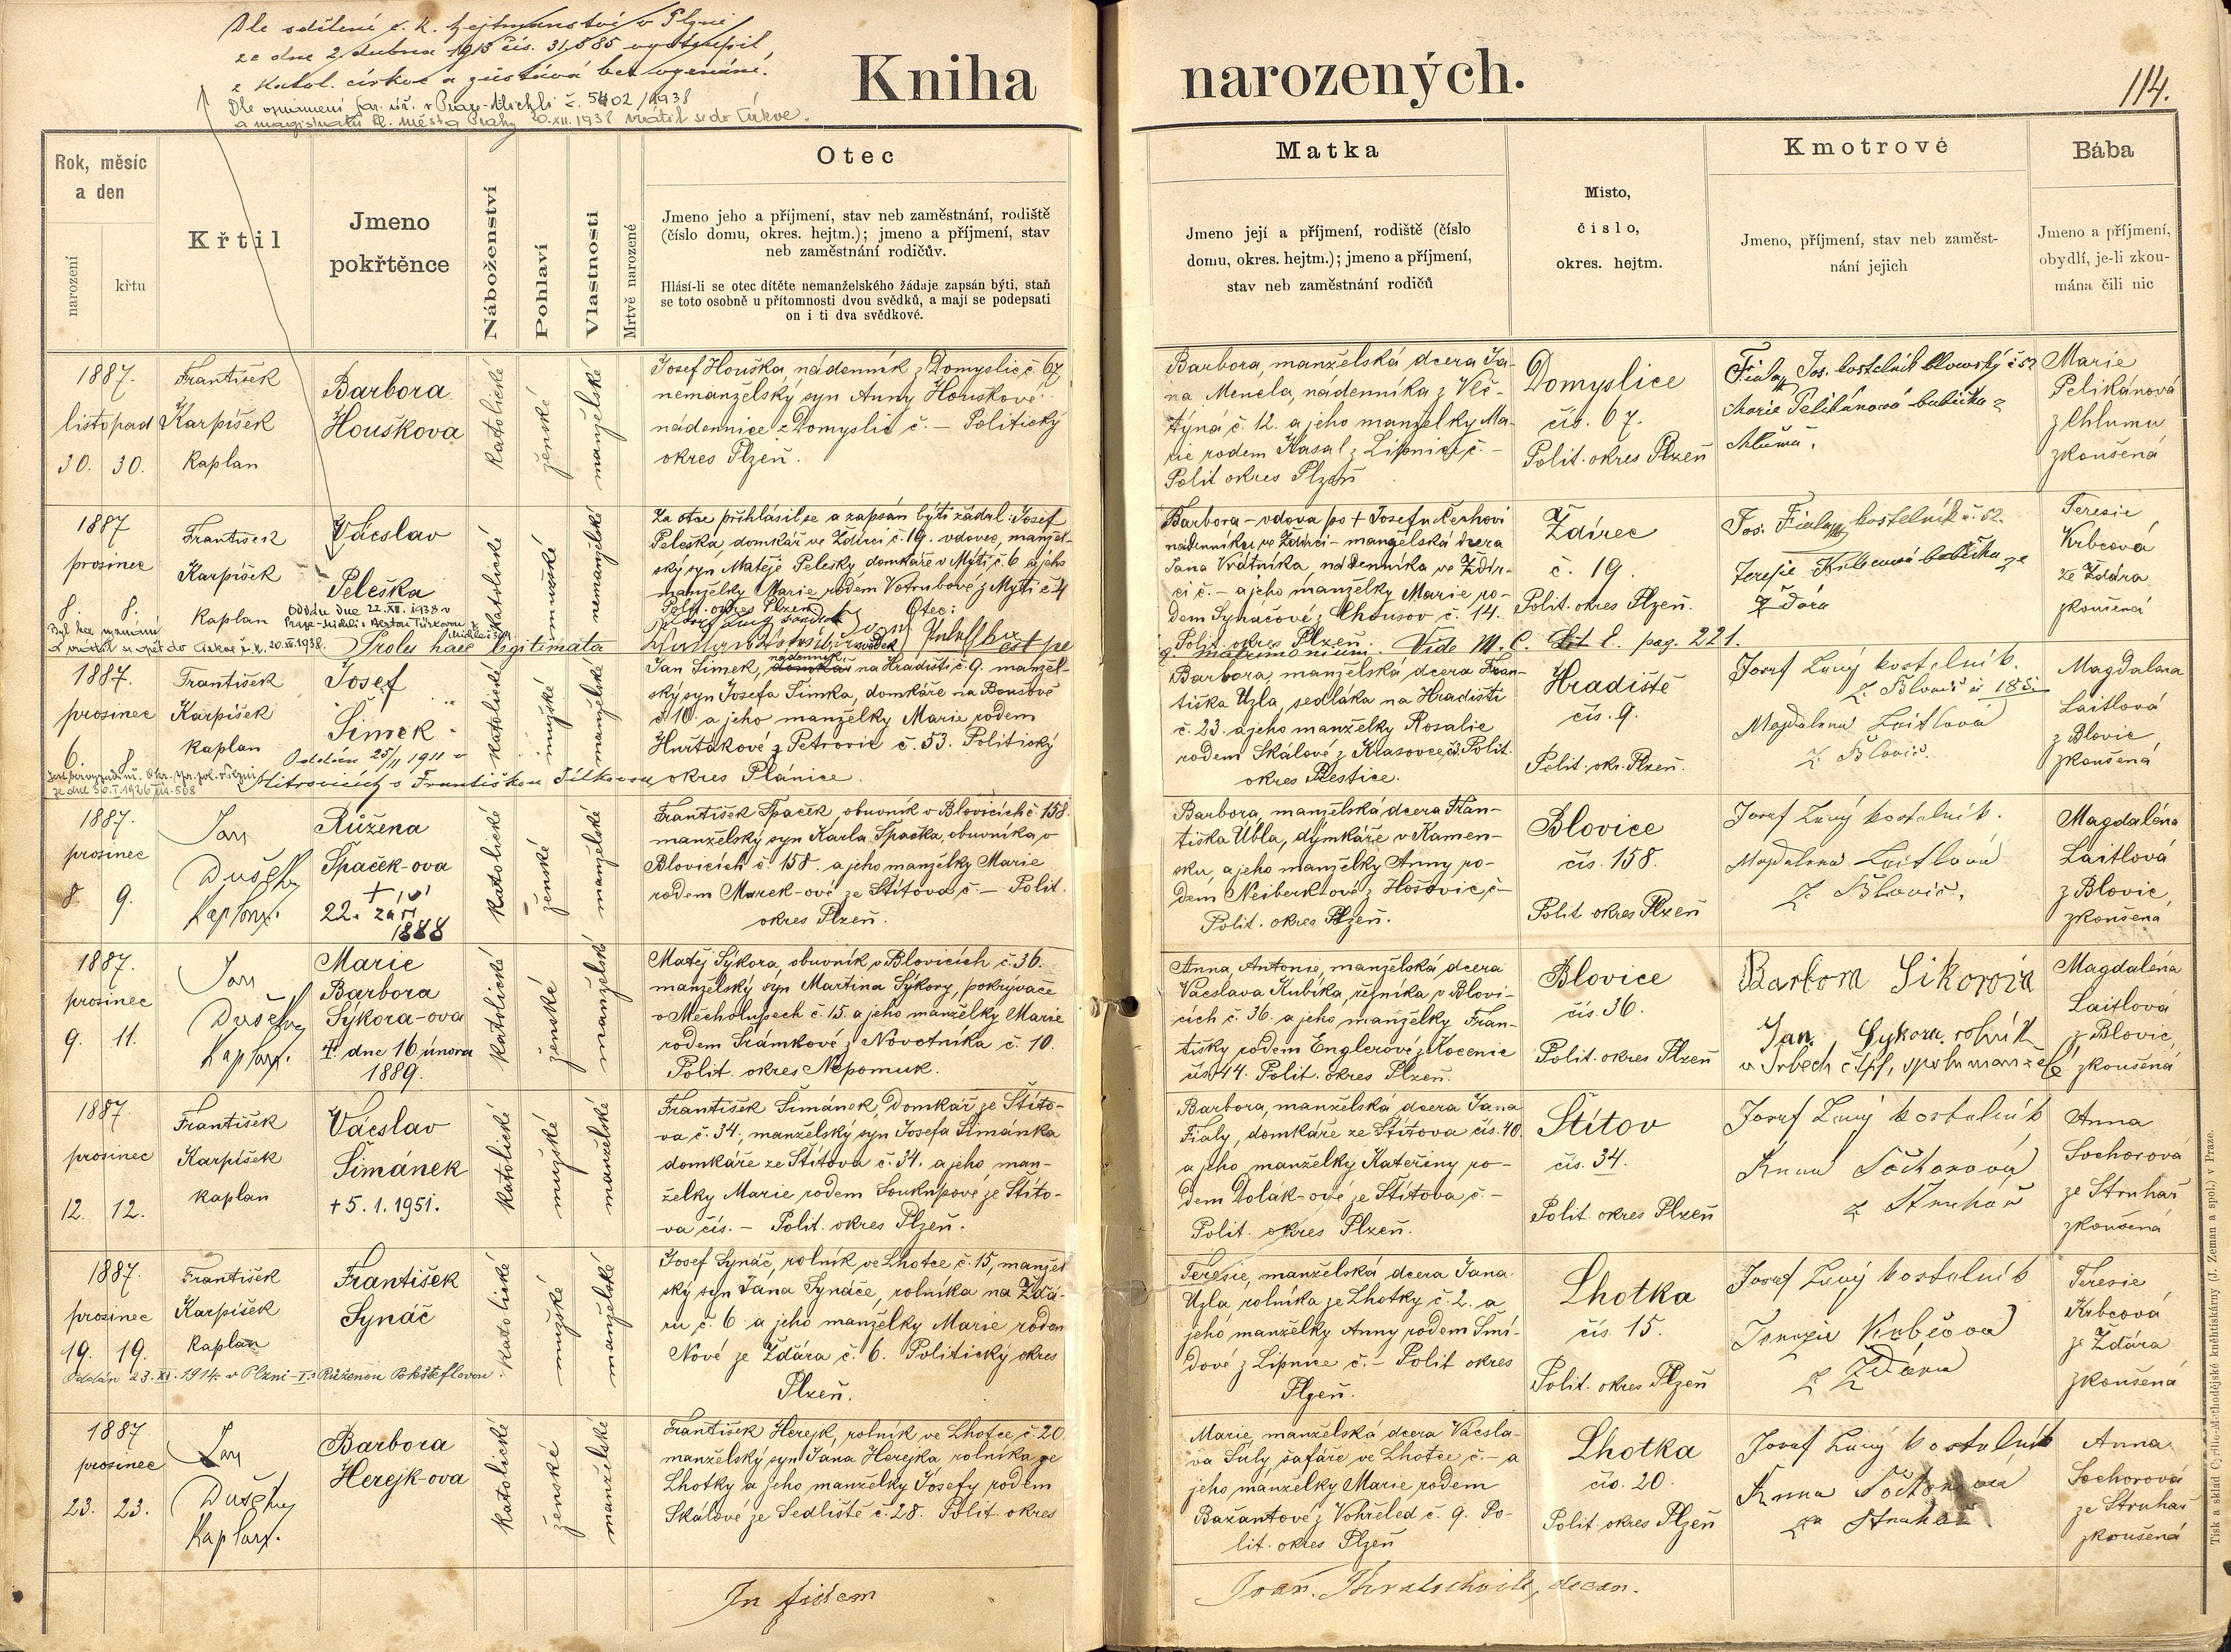 Dle sdělení c. k. hejtmanství v Plzni
ze dne 2 dubna 1913 čís. 31,885 vystoupil
z katol. církve a zůstává bez vyznání.
Dle oznámení far. úř. v Praze-Michli č. 5402/1938
a magistrátu hl. města Prahy 20.XII.1938 vrátil se do církve.
Kniha narozených.
114.
Rok, měsíc
a den
narození
křtu
Křtil
Jmeno
pokřtěnce
Náboženství
Pohlaví
Vlastnosti
Mrtvě narozené
Otec
Jmeno jeho a příjmení, stav neb zaměstnání, rodiště
(číslo domu, okres. hejtm.); jmeno a příjmení, stav
neb zaměstnání rodičův.
Hlásí-li se otec dítěte nemanželského žádaje zapsán býti, staň
se toto osobně u přítomnosti dvou svědků, a mají se podepsati
on i ti dva svědkové.
Matka
Jmeno její a příjmení, rodiště (číslo
domu, okres. hejtm.); jmeno a příjmení,
stav neb zaměstnání rodičů
Misto,
číslo,
okres. hejtm.
Kmotrové
Jmeno, příjmení, stav neb zaměst-
nání jejich
Bába
Jmeno a příjmení,
obydlí, je-li zkou-
mána čili nic
1887.
listopad
30. 30.
František
Karpíšek
kaplan
Barbora
Houškova
katolické
ženské
manželské
Josef Houška, nádenník z Domyslic č. 67
nemanželský syn Anny Houškové
nádennice z Domyslic č. – Politický
okres Plzeň.
Barbora, manželská dcera Ja-
na Mencla, nádenníka z Vlč-
týná č. 12. a jeho manželky Ma-
rie rodem Kasal z Lipnice č. –
Polit okres Plzeň
Domyslice
čís. 67.
Polit. okres Plzeň
Fiala Jos. kostelník blovský č 52
Marie Pelikánová babička z
Chlumu.
Marie
Pelikánová
z Chlumu
zkoušená
1887
prosinec
8. 8.
František
Karpíšek
kaplan
Václav
Peleška
Oddán dne 22.XII.1938 v
Praze-Michli s Bertou Türkovou z
Michle č 309.
Byl bez vyznání
a vrátil se opět do církve r. k. 20.XII.1938.
katolické
mužské
nemanželské
Za otce přihlásil se a zapsán býti žádal: Josef
Peleška, domkář ve Ždírci č. 19. vdovec, manžel-
ský syn Matěje Pelešky domkáře v Mýti č. 6 a jeho
manželky Marie rodem Votrubové z Mýti č 4
Polit. okres Plzeň
Otec:
Proles haec legitimata est per
Barbora – vdova po † Josefu Čechovi
nádenníku ve Ždírci – manželská dcera
Jana Vrátníka, nádenníka ve Ždír-
ci č. – a jeho manželky Marie ro-
dem Synáčové z Chousov č. 14.
Polit. okres Plzeň.
matrimonium. Vide M. C. Lit E. pag. 221.
Ždírec
č. 19.
Polit. okres Plzeň.
Jos. Fiala kostelník č. 52.
Teresie Krbcová babička ze
Ždára
Teresie
Krbcová
ze Ždára
zkoušená
1887.
prosinec
6. 8.
František
Karpíšek
kaplan
Josef
Šimek
Oddán 25/11 1911 v
Mitrovicích s Františkou Fialkovou
Jest bez vyznání. Okr. spr. pol. v Plzni
ze dne 30.I.1926 čís. 508
katolické
mužské
manželské
Jan Šimek, nádenník na Hradišti č 9. manžel-
ský syn Josefa Šimka, domkáře na Bousově
č. 10. a jeho manželky Marie rodem
Hurtákové z Petrovic č. 53. Politický
okres Plánice.
Barbora, manželská dcera Fran-
tiška Uzla, sedláka na Hradišti
č. 23. a jeho manželky Rosalie
rodem Skálové z Krasovce, č. Polit.
okres Přeštice.
Hradiště
čís. 9.
Polit. okr. Plzeň.
Josef Luný kostelník.
z Blovic č 185
Magdalena Laitlová
z Blovic.
Magdalena
Laitlová
z Blovic
zkoušená
1887.
prosinec
8. 9.
Jan
Dušek
Kaplan.
Růžena
Špaček-ova
†
22. září
1888
katolické
ženské
manželské
František Špaček, obuvník v Blovicích č. 158.
manželský syn Karla Špačka, obuvníka v
Blovicích č. 158. a jeho manželky Marie
rodem Marek-ové ze Štítova č – Polit.
okres Plzeň.
Barbora, manželská dcera Fran-
tiška Übla, domkáře v Kamen-
sku, a jeho manželky Anny ro-
dem Neiberk-ové z Hošovic, č –
Polit. okres Plzeň.
Blovice
čís. 158.
Polit okres Plzeň
Josef Luný kostelník.
Magdalena Laitlová
z Blovic.
Magdaléna
Laitlová
z Blovic,
zkoušená
1887.
prosinec
9. 11.
Jan
Dušek
Kaplan.
Marie
Barbora
Sýkora-ova
†. dne 16 února
1889.
katolické
ženské
manželské
Matěj Sýkora, obuvník v Blovicích č. 36.
manželský syn Martina Sýkory, pokrývače
v Měcholupech č. 15. a jeho manželky Marie
rodem Šrámkové z Novotníka č. 10.
Polit. okres Nepomuk.
Anna, Antonie, manželská dcera
Václava Kubíka, řezníka v Blovi-
cích č. 36. a jeho manželky Fran-
tišky rodem Englerové z Kocenic
čís 44. Polit. okres Plzeň.
Blovice
čís. 36.
Polit. okres Plzeň
Barbora Sikorová
Jan Sykora rolník
v Srbech
Magdaléna
Laitlová
z Blovic,
zkoušená
1887
prosinec
12. 12.
František
Karpíšek
kaplan
Václav
Šimánek
+ 5. 1. 1951.
katolické
mužské
manželské
František Šimánek, Domkář ze Štíto-
va č. 34., manželský syn Josefa Šimánka
domkáře ze Štítova č. 34. a jeho man-
želky Marie rodem Soukupové ze Štíto-
va čís. – Polit. okres Plzeň.
Barbora, manželská dcera Jana
Fialy, domkáře ze Štítova čís. 40.
a jeho manželky Kateřiny ro-
dem Dolák-ové ze Štítova č. –
Polit. okres Plzeň.
Štítov
čís. 34.
Polit. okres Plzeň
Josef Luný kostelník
Anna Sochorová
z Struhař
Anna
Sochorová
ze Struhař
zkoušená
1887.
prosinec
19. 19.
František
Karpíšek
kaplan
František
Synáč
Oddán 23.XI.1914 v Plzni-I. s Růženou Pokšteflovou.
katolické
mužské
manželské
Josef Synáč, rolník ve Lhotce č. 15, manžel
ský syn Jana Synáče, rolníka na Ždá-
ru č. 6 a jeho manželky Marie rodem
Nové ze Ždára č. 6. Politický okres
Plzeň.
Teresie, manželská dcera Jana
Uzla, rolníka ze Lhotky č. 2. a
jeho manželky Anny rodem Šmí-
dové z Lipnice č. – Polit okres
Plzeň.
Lhotka
čís. 15.
Polit. okres Plzeň
Josef Luný kostelník
Terezie Krbcová
z Ždáru
Teresie
Krbcová
ze Ždára
zkoušená
1887
prosinec
23. 23.
Jan
Dušek
Kaplan.
Barbora
Herejk-ova
katolické
ženské
manželské
František Herejk, rolník ve Lhotce, č. 20
manželský syn Jana Herejka rolníka ze
Lhotky a jeho manželky Josefy rodem
Skálové ze Sedliště č. 28. Polit. okres
Marie, manželská dcera Václa-
va Šuly, šafáře ve Lhotce č. – a
jeho manželky Marie rodem
Bažantové z Vohřeled č. 9. Po-
lit. okres Plzeň
Lhotka
čís. 20.
Polit. okres Plzeň
Josef Luný kostelník
Anna Sochorová
ze Struhař
Anna
Sochorová
ze Struhař
zkoušená
In fidem
decan.
Tisk a sklad Cyrillo-Methodějské kněhtiskárny (J. Zeman a spol.) v Praze.